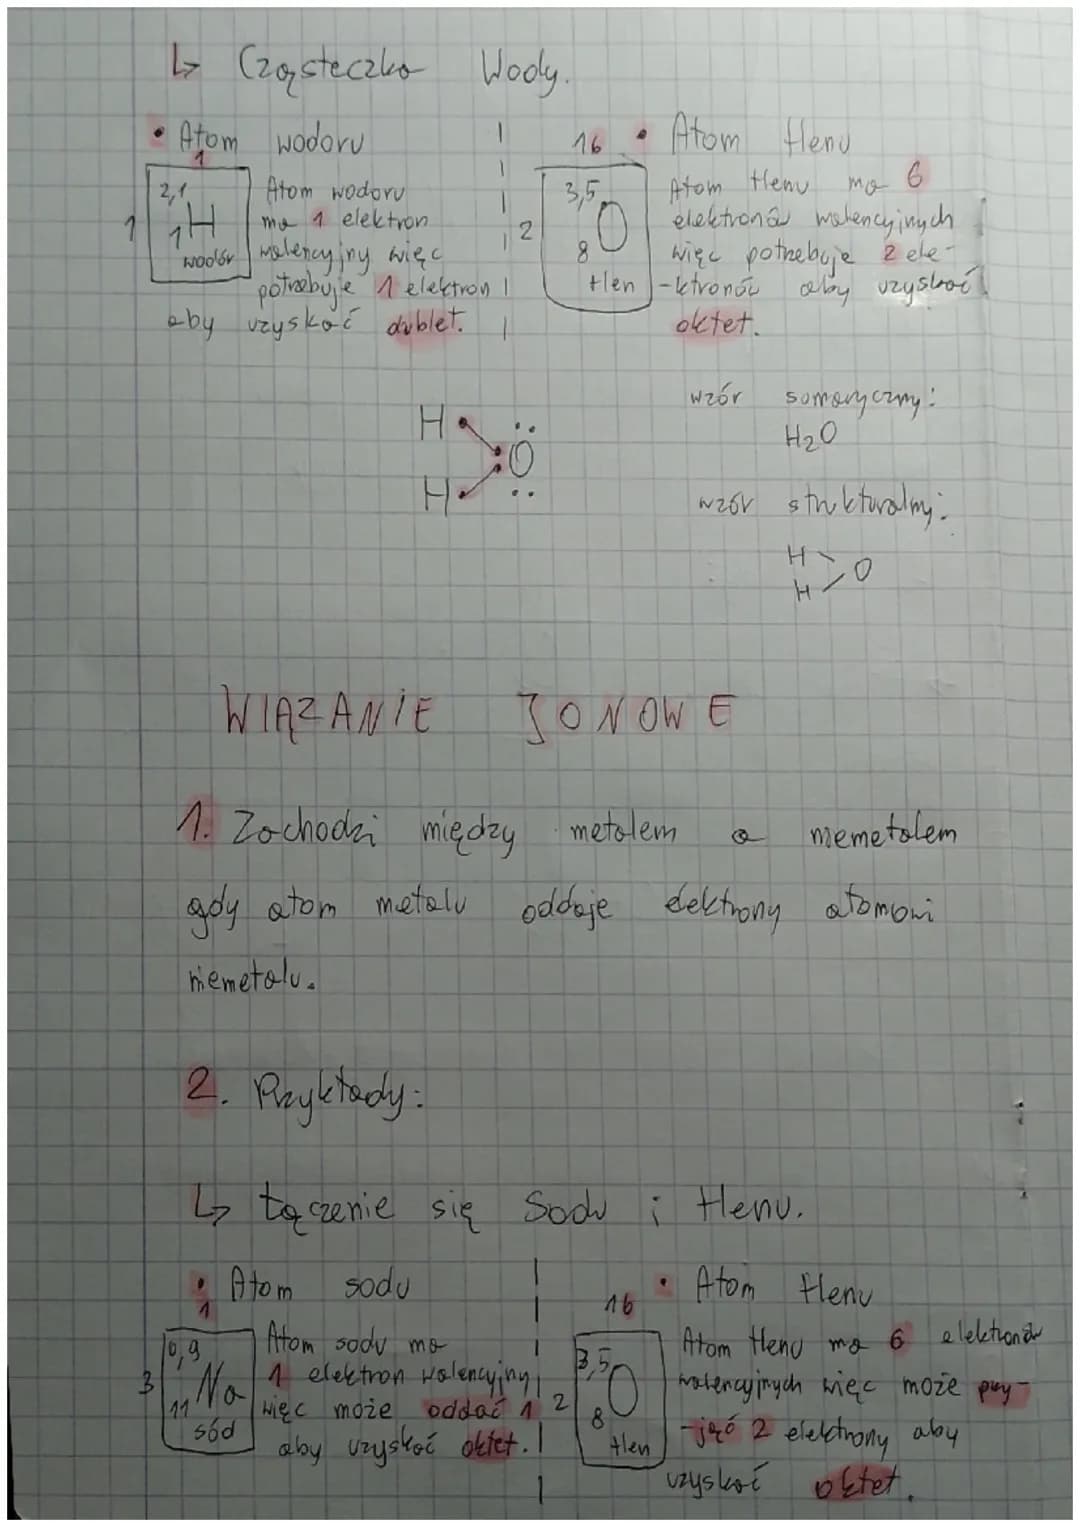 ↳ Cząsteczka Wody.
• Atom wodoru
1
2,1
1
1H
wodór
Atom wodoru
ma 1 elektron
walencyjny więc
potrzebuje 1 elektron
aby uzyskać dublet.
16 • Atom tlenu
3,5
2
O
8
tlen
Atom tlenu ma 6
elektronów walencyjnych
więc potrzebuje 2 ele-
-ktronów aby uzyskać
oktet.
H
O
H
wzór sumaryczny:
H₂O
wzór strukturalny:
H
O
H
WIĄZANIE JONOWE
1. Zachodzi między metalem a niemetalem
gdy atom metalu oddaje elektrony atomowi
niemetalu.
2. Przykłady:
↳ łączenie się Sodu i tlenu.
• Atom sodu
1
0,9
3
11Na
sód
Atom sodu ma
1 elektron walencyjny
więc może oddać 1
aby uzyskać oktet.
16 • Atom tlenu
3,5
2
O
8
tlen
Atom tlenu ma 6 elektronów
walencyjnych więc może przy-
-jąć 2 elektrony aby
uzyskać oktet.